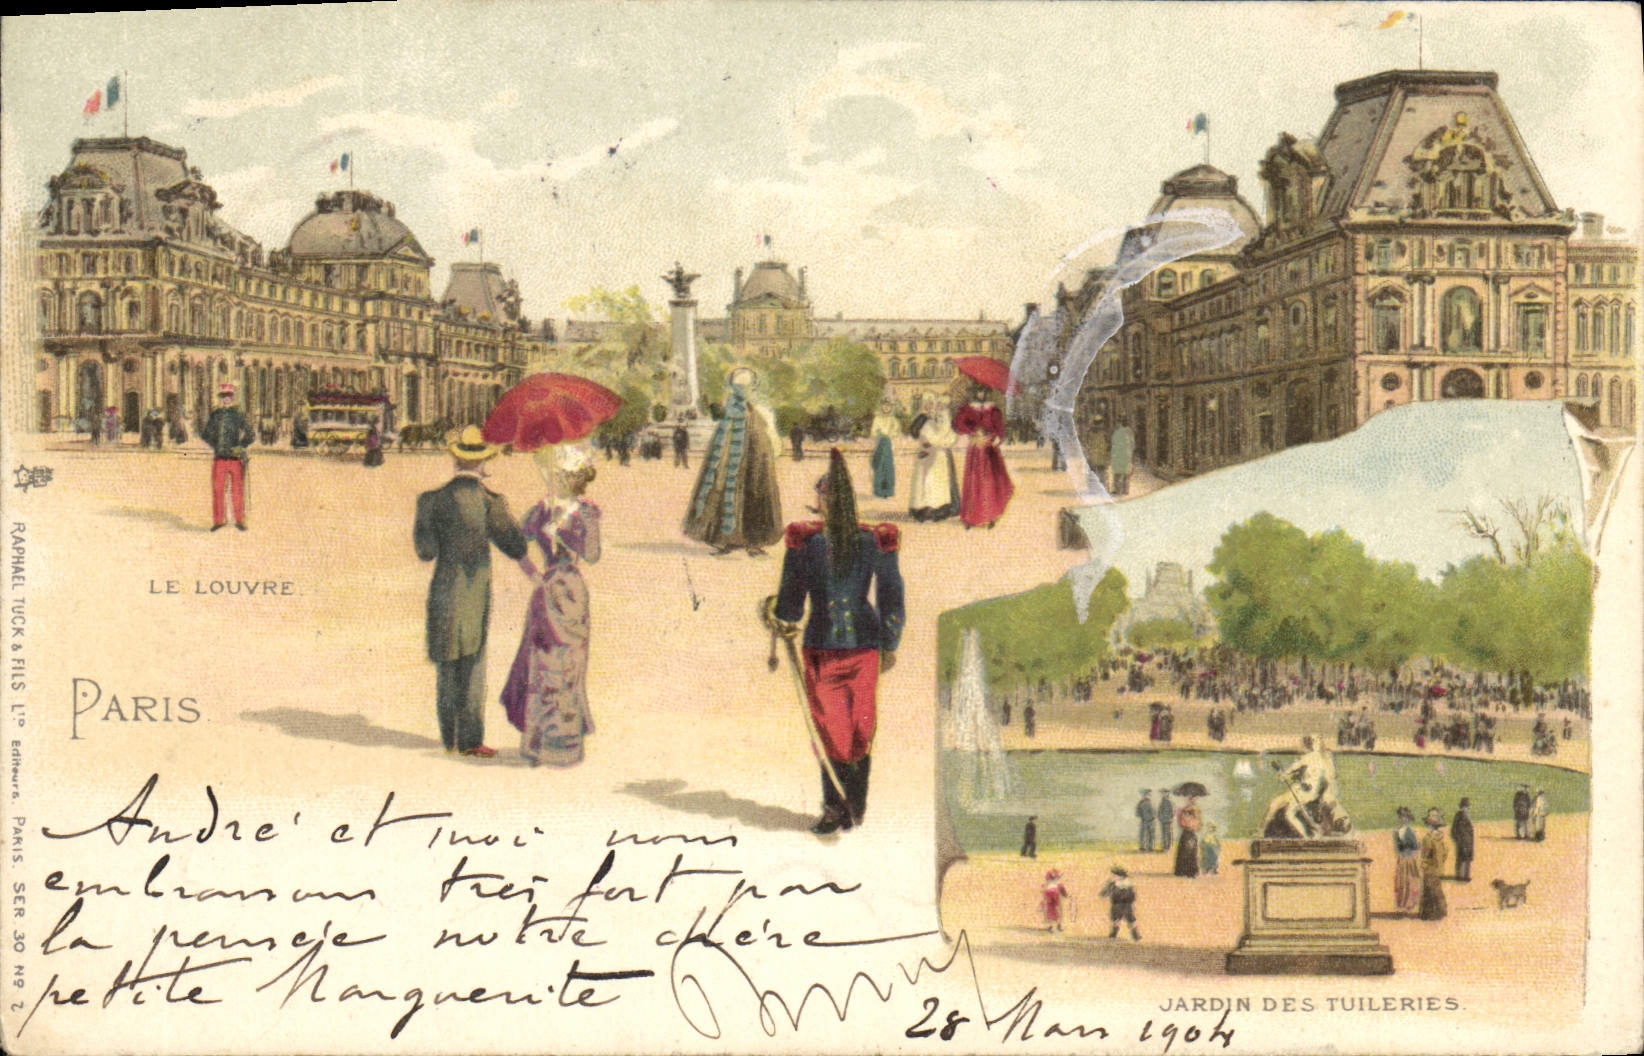 LE LOUVRE.
PARIS.
RAPHAEL TUCK & FILS LTD Editeurs. PARIS. SER 30 No 2
André et moi nous
embrassons très fort par
la pensée notre chère
petite Marguerite
28 Mars 1904
JARDIN DES TUILERIES.